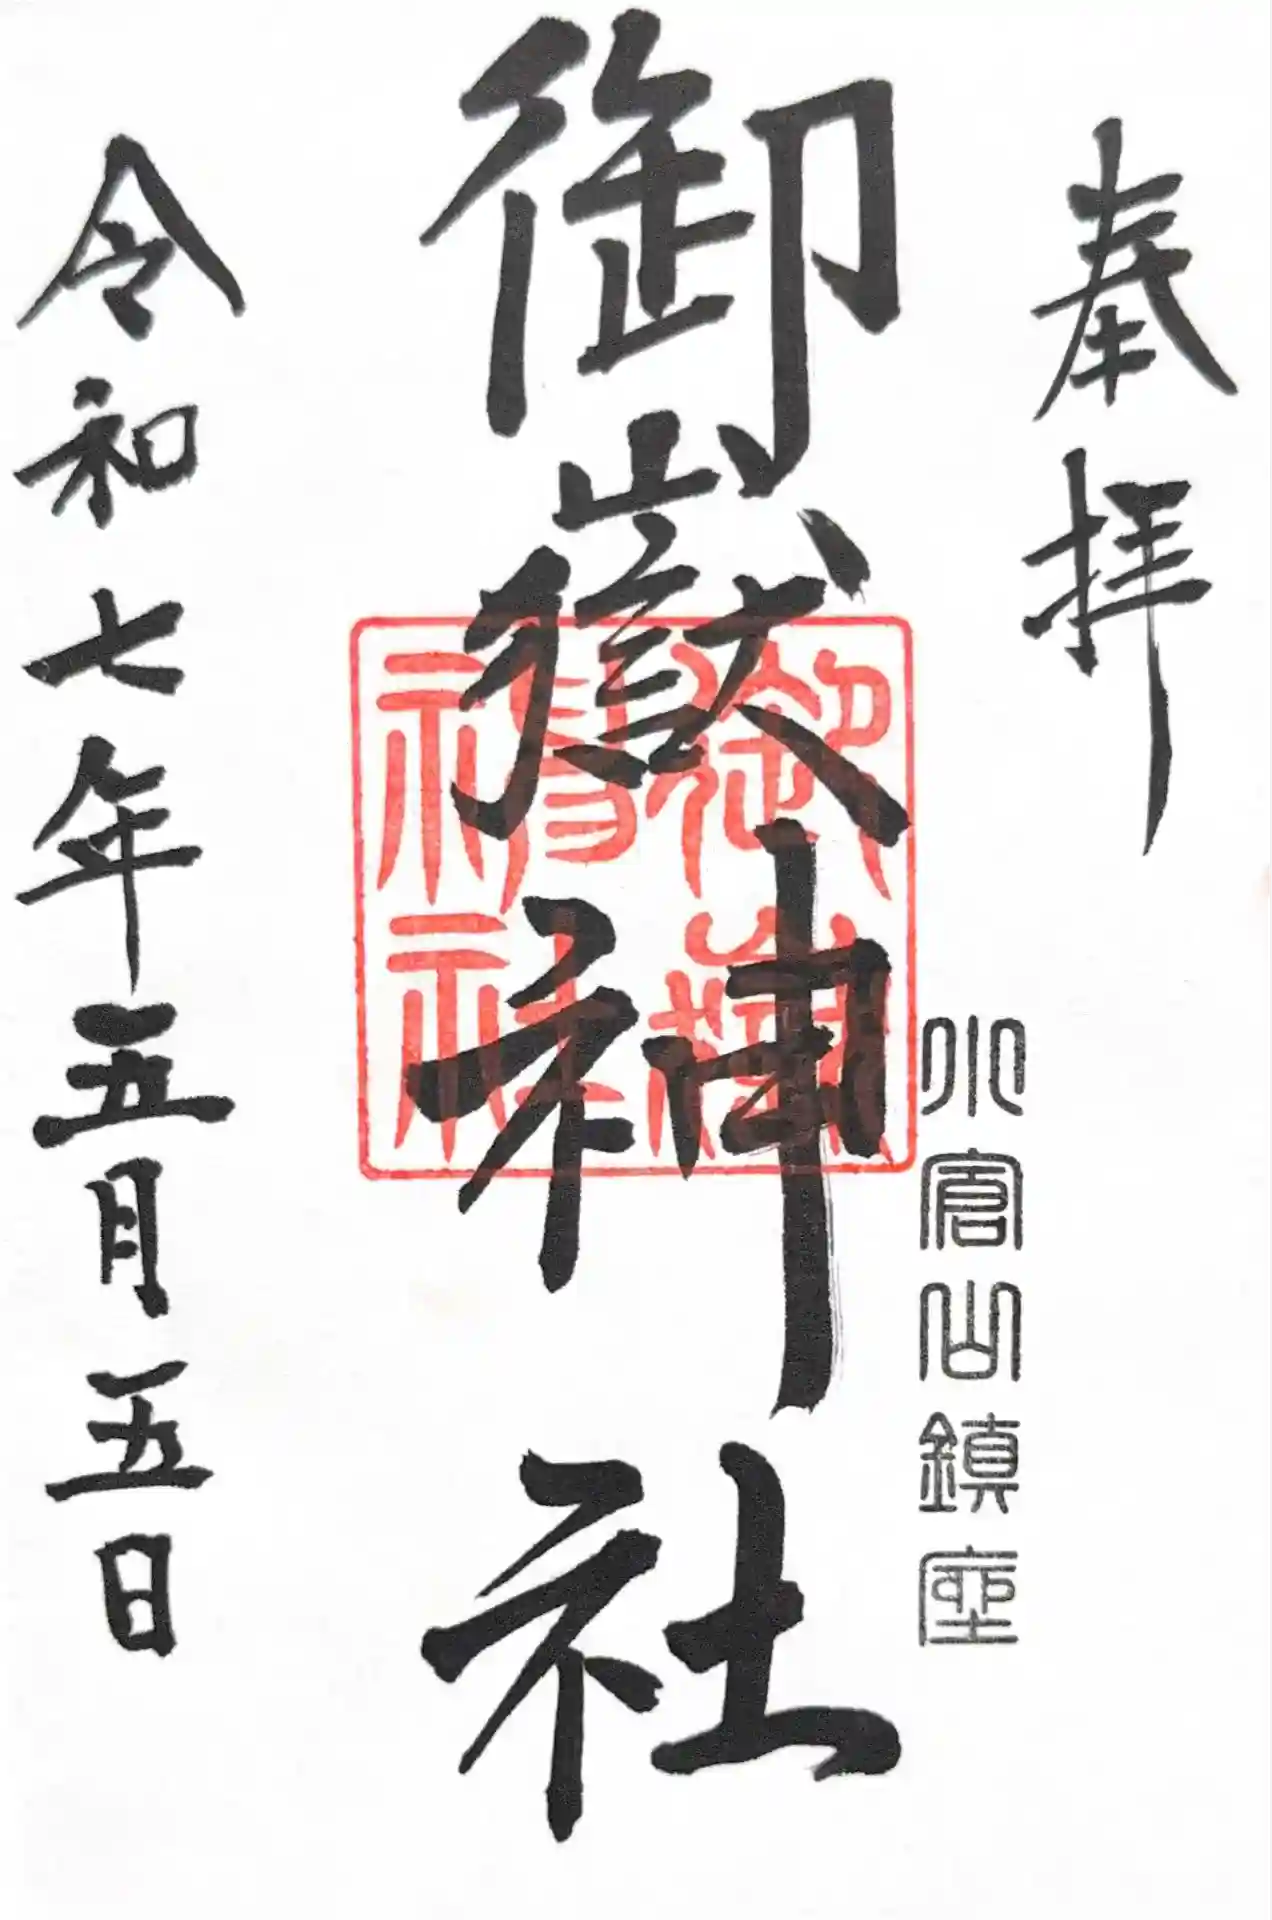 奉拝
小倉山鎮座
御嶽神社
御嶽
神社
令和七年五月五日